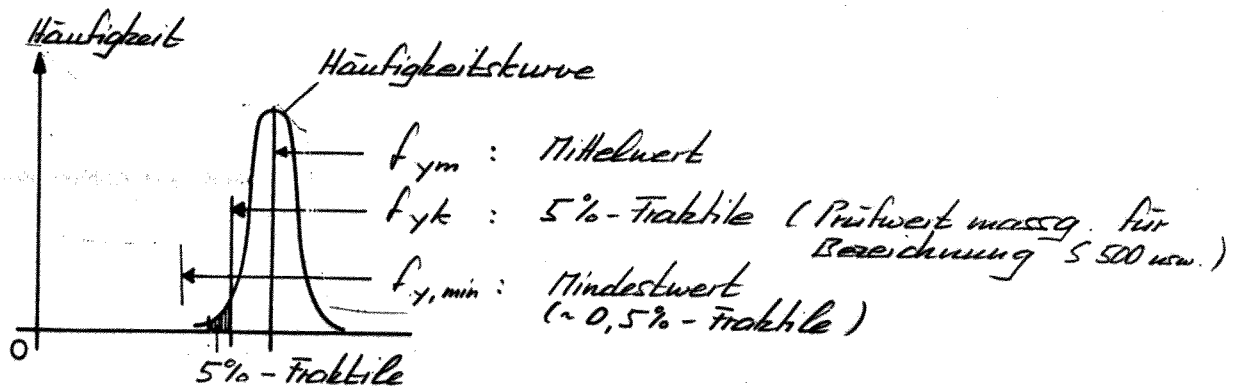 Häufigkeit
Häufigkeitskurve
f ym : Mittelwert
f yk : 5%-Fraktile (Prüfwert massg. für
Bezeichnung S 500 usw.)
f y,min : Mindestwert
(~0,5%-Fraktile)
0
5%-Fraktile